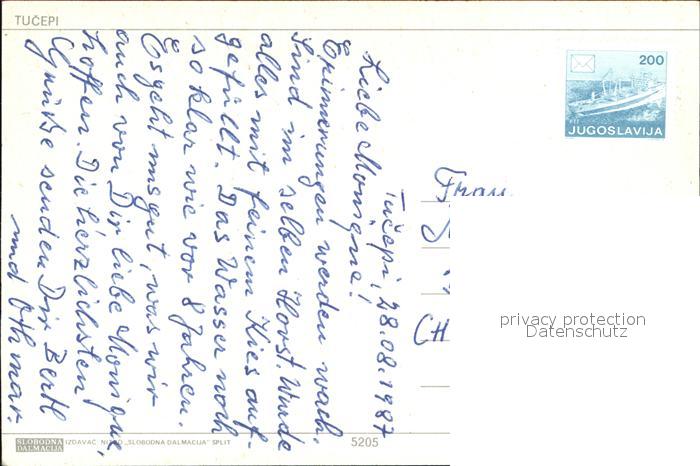 TUČEPI
200
JUGOSLAVIJA
Tučepi, 28.08.1987
Liebe Monique!
Erinnerungen werden wach.
Sind im selben Horst. Wurde
alles mit feinem Kies auf-
gefüllt. Das Wasser noch
so klar wie vor 8 Jahren.
Es geht uns gut, was wir
auch von Dir liebe Monique,
hoffen. Die herzlichsten
Grüße senden Dir Bertl
und Othmar.
Frau
CH
privacy protection
Datenschutz
SLOBODNA
DALMACIJA
IZDAVAČ „SLOBODNA DALMACIJA" SPLIT
5205